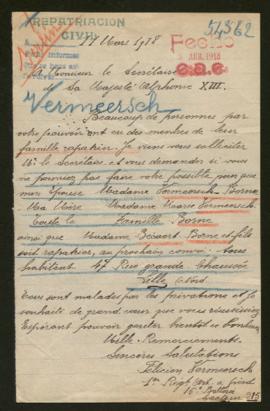 REPATRIACION
CIVIL
54362
17 Mars 1918
Fecho
ABR. 1918
A Monsieur le Secrétaire
de Sa Majesté Alphonse XIII.
Vermeersch
Beaucoup de personnes par
votre pouvoir ont eu des membres de leur
famille rapatrier. Je viens vous solliciter
Mr le Secrétaire et vous demander si vous
ne pourriez pas faire votre possible pour que
mon Epouse Madame Vermeersch Borne
Ma Mère Madame Vermeersch
Toute la Famille Borne
ainsi que Madame Borne et fils
soit rapatrier, au prochain convoi. Tous
habitent 47 Rue grande Chaussée
Lille Nord
Tous sont malades par les privations et je
souhaite de grand cœur que vous réussissiez
Espérant pouvoir goûter bientôt ce bonheur
Mille Remerciements.
Sincères Salutations
Felicien Vermeersch
1er Regt Art. à pied
15e Batterie
Secteur 215